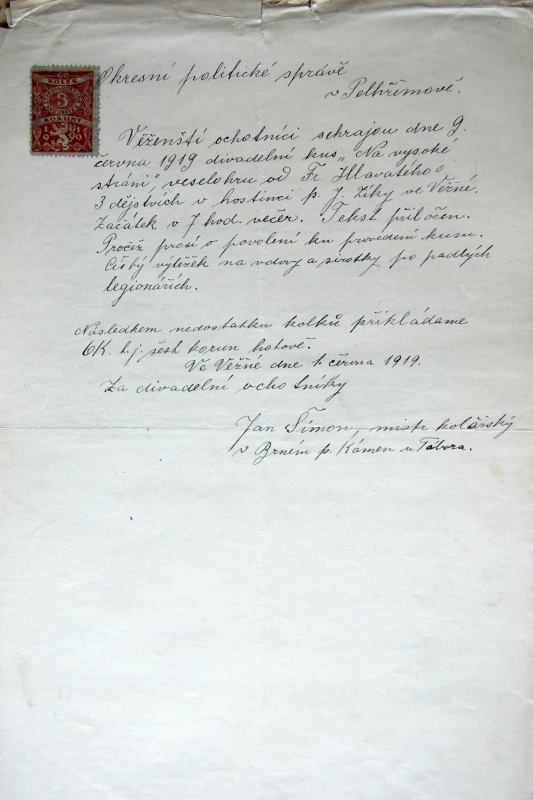 KOLEK
3
KORUNY
1919
Okresní politické správě
v Pelhřimově.
Věženští ochotníci sehrajou dne 9.
června 1919 divadelní kus „Na vysoké
stráni", veselohru od Fr. Hlavatého o
3 dějstvích v hostinci p. J. Žíky ve Věžné.
Začátek v 7 hod. večer. Tekst přiločen.
Pročež prosí o povolení ku provedení kusu.
Čistý výtěžek na vdovy a sirotky po padlých
legionářích.
Následkem nedostatku kolků přikládáme
6K t.j. šest korun hotově.
Ve Věžné dne 1. června 1919.
Za divadelní ochotníky
Jan Šimon, mistr kolářský
v Brném p. Kámen u Tábora.